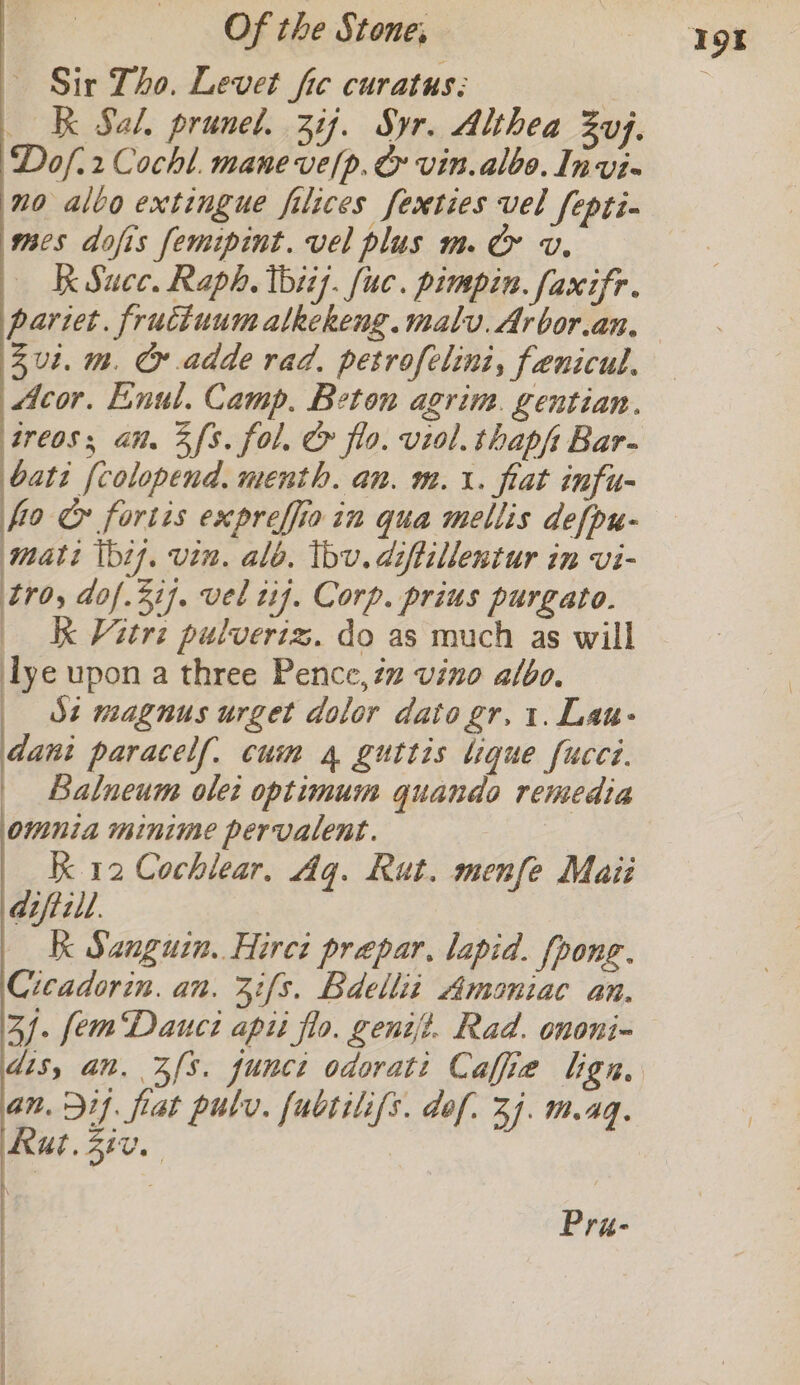 Of the Stone, 191
Sir Tho. Levet ſic curatus:
℞ Sal. prunel. ʒij. Syr. Althea ℥vj.
Doſ. 2 Cochl. mane veſp. & vin. albo. In vi-
no albo extingue ſilices ſexties vel ſepti-
mes doſis ſemipint. vel plus m. & v.
℞ Succ. Raph. ℔iij. ſuc. pimpin. ſaxifr.
pariet. fructuum alkekeng. malv. Arbor. an.
℥vi. m. & adde rad. petroſelini, fænicul.
Acor. Enul. Camp. Beton agrim. gentian.
ireos; an. ℥ſs. fol. & flo. viol. thapſi Bar-
bati ſcolopend. menth. an. m. 1. fiat infu-
ſio & fortis expreſſio in qua mellis deſpu-
mati ℔ij. vin. alb. ℔v. diſtillentur in vi-
tro, doſ. ℥ij. vel iij. Corp. prius purgato.
℞ Vitri pulveriz. do as much as will
lye upon a three Pence, in vino albo.
Si magnus urget dolor dato gr. 1. Lau-
dani paracelſ. cum 4 guttis lique ſucci.
Balneum olei optimum quando remedia
omnia minime pervalent.
℞ 12 Cochlear. Aq. Rut. menſe Maii
diſtill.
℞ Sanguin. Hirci præpar. lapid. ſpong.
Cicadorin. an. ʒiſs. Bdellii Amoniac an.
ʒj. ſem Dauci apii flo. geniſt. Rad. ononi-
dis, an. ʒſs. junci odorati Caſſiæ lign.
an. ℈ij. fiat pulv. ſubtiliſs. doſ. ʒj. m. aq.
Rut. ℥iv.
Pru-